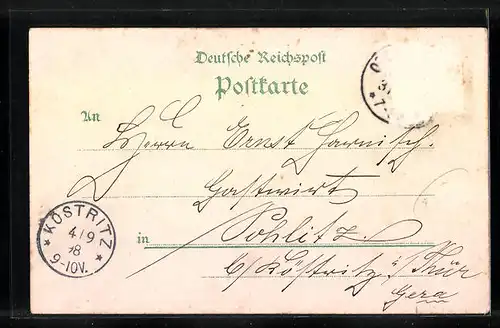 Deutsche Reichspost
Postkarte
An
Herrn Ernst Harnisch.
Gastwirt
in Pohlitz.
b/Köstritz i/Thür
Gera
* KÖSTRITZ *
4/9
98
9-10V.